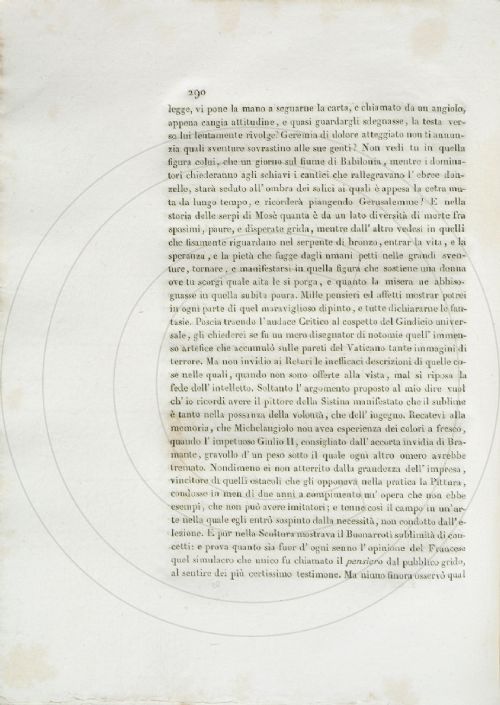 290
legge, vi pone la mano a segnarne la carta, e chiamato da un angiolo,
appena cangia attitudine, e quasi guardargli sdegnasse, la testa ver-
so lui lentamente rivolge? Geremia di dolore atteggiato non ti annun-
zia quali sventure sovrastino alle sue genti? Non vedi tu in quella
figura colui, che un giorno sul fiume di Babilonia, mentre i domina-
tori chiederanno agli schiavi i cantici che rallegravano l' ebree don-
zelle, starà seduto all' ombra dei salici ai quali è appesa la cetra mu-
ta da lungo tempo, e ricorderà piangendo Gerusalemme? E nella
storia delle serpi di Mosè quanta è da un lato diversità di morte fra
spasimi, paure, e disperate grida, mentre dall' altro vedesi in quelli
che fisamente riguardano nel serpente di bronzo, entrar la vita, e la
speranza, e la pietà che fugge dagli umani petti nelle grandi sven-
ture, tornare, e manifestarsi in quella figura che sostiene una donna
ove tu scorgi quale aita le si porga, e quanto la misera ne abbiso-
gnasse in quella subita paura. Mille pensieri ed affetti mostrar potrei
in ogni parte di quel maraviglioso dipinto, e tutte dichiararne le fan-
tasie. Poscia traendo l' audace Critico al cospetto del Giudicio univer-
sale, gli chiederei se fu un mero disegnator di notomie quell' immen-
so artefice che accumulò sulle pareti del Vaticano tante immagini di
terrore. Ma non invidio ai Retori le inefficaci descrizioni di quelle co-
se nelle quali, quando non sono offerte alla vista, mal si riposa la
fede dell' intelletto. Soltanto l' argomento proposto al mio dire vuol
ch' io ricordi avere il pittore della Sistina manifestato che il sublime
è tanto nella possanza della volontà, che dell' ingegno. Recatevi alla
memoria, che Michelangiolo non avea esperienza dei colori a fresco,
quando l' impetuoso Giulio II, consigliato dall' accorta invidia di Bra-
mante, gravollo d' un peso sotto il quale ogni altro omero avrebbe
tremato. Nondimeno ei non atterrito dalla grandezza dell' impresa,
vincitore di quelli ostacoli che gli opponeva nella pratica la Pittura,
condusse in men di due anni a compimento un' opera che non ebbe
esempi, che non può avere imitatori; e tenne così il campo in un' ar-
te nella quale egli entrò sospinto dalla necessità, non condotto dall' e-
lezione. E pur nella Scultura mostrava il Buonarroti sublimità di con-
cetti: e prova quanto sia fuor d' ogni senno l' opinione del Francese
quel simulacro che unico fu chiamato il pensiero dal pubblico grido,
al sentire dei più certissimo testimone. Ma niuno finora osservò qual